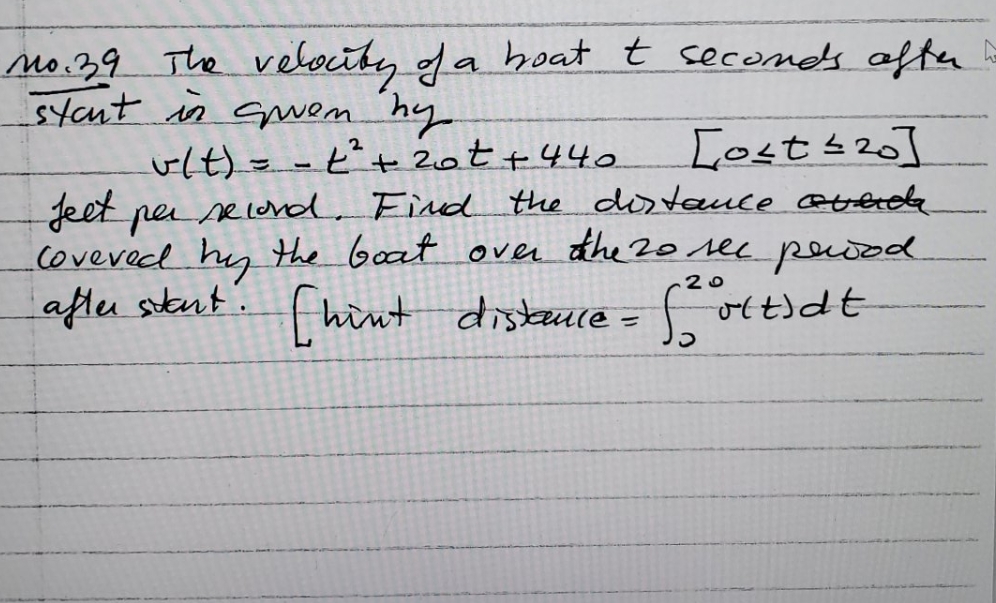 No.39 The velocity of a boat t seconds after
start is given by
v(t) = -t² + 20t + 440 [0≤t≤20]
feet per second. Find the distance
covered by the boat over the 20 sec period
after start. [hint distance = ∫₀²⁰ v(t)dt